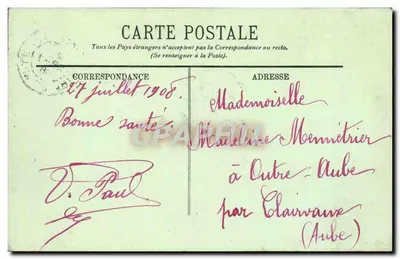 CARTE POSTALE
Tous les Pays étrangers n'acceptent pas la Correspondance au recto.
(Se renseigner à la Poste).
CORRESPONDANCE
27 juillet 1908.
Bonne santé.
V. Paul
ADRESSE
Mademoiselle
Madeleine Mennétrier
à Outre-Aube
par Clairvaux
(Aube)